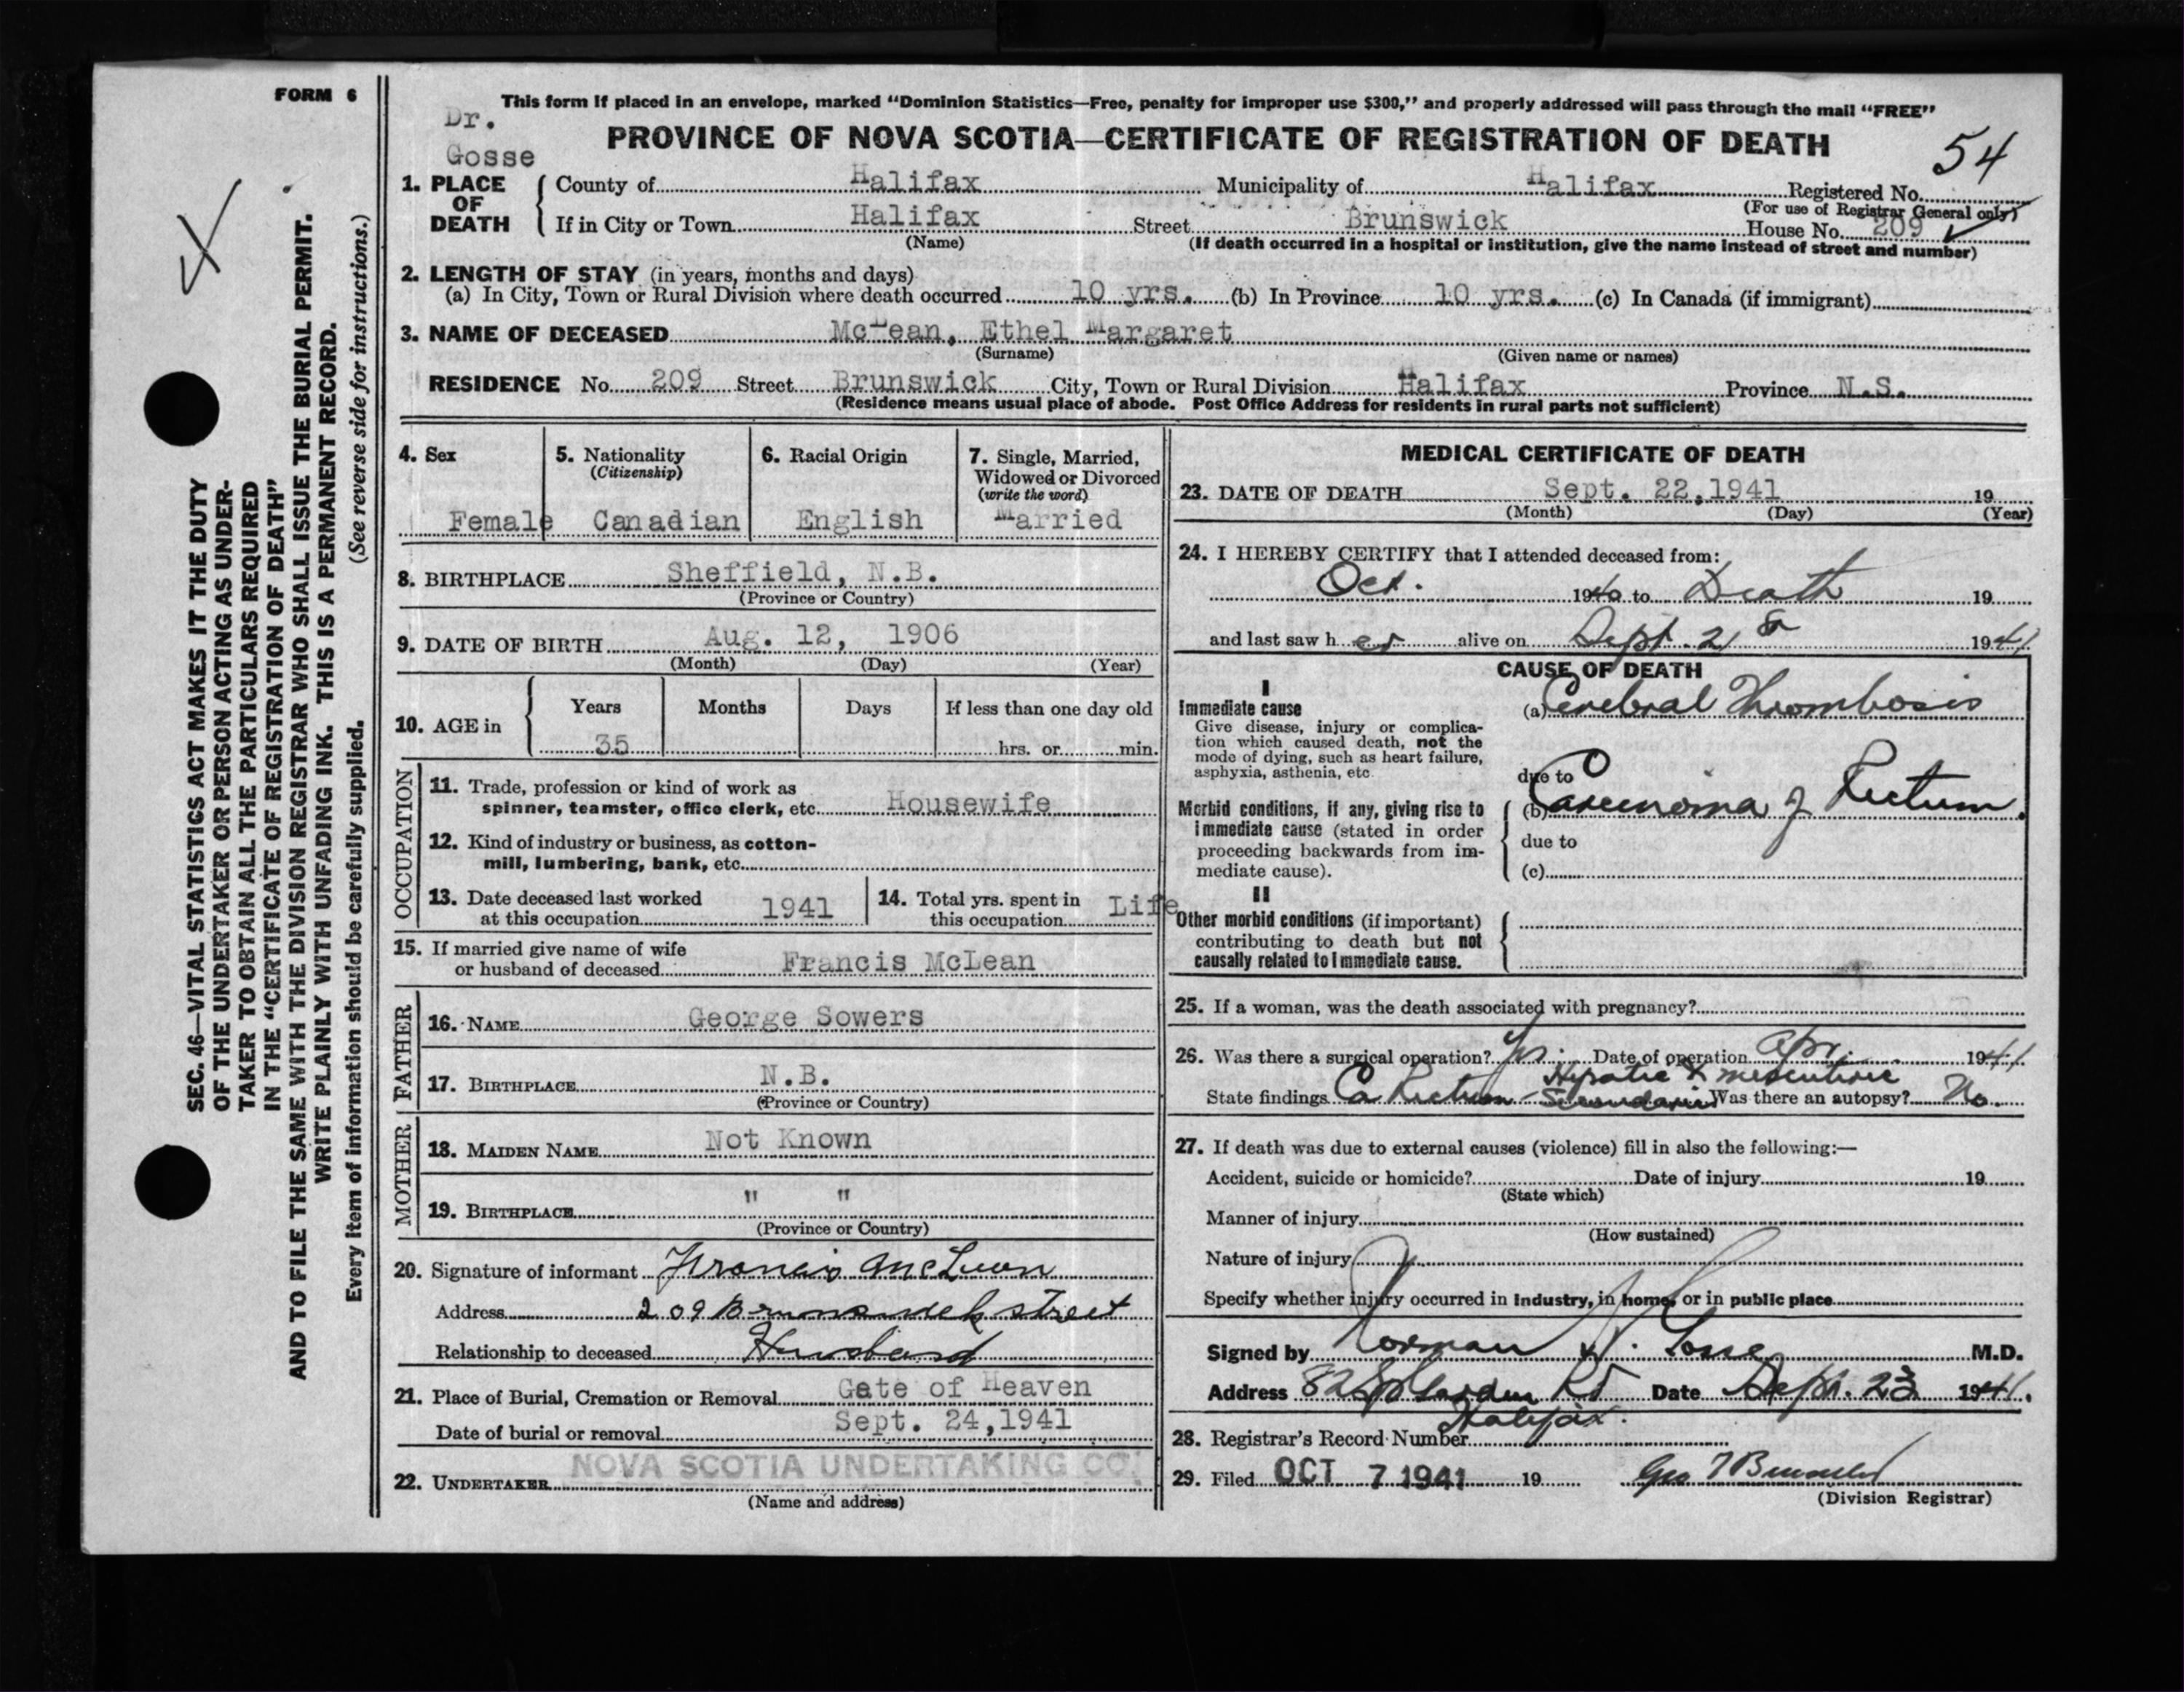 FORM 6
This form if placed in an envelope, marked "Dominion Statistics—Free, penalty for improper use $300," and properly addressed will pass through the mail "FREE"
Dr.
Gosse
PROVINCE OF NOVA SCOTIA—CERTIFICATE OF REGISTRATION OF DEATH
54
1. PLACE OF DEATH { County of Halifax Municipality of Halifax Registered No.
(For use of Registrar General only)
If in City or Town Halifax Street Brunswick House No. 209
(Name) (If death occurred in a hospital or institution, give the name instead of street and number)
2. LENGTH OF STAY (in years, months and days)
(a) In City, Town or Rural Division where death occurred 10 yrs. (b) In Province 10 yrs. (c) In Canada (if immigrant)
3. NAME OF DECEASED McLean, Ethel Margaret
(Surname) (Given name or names)
RESIDENCE No. 209 Street Brunswick City, Town or Rural Division Halifax Province N.S.
(Residence means usual place of abode. Post Office Address for residents in rural parts not sufficient)
4. Sex 5. Nationality (Citizenship) 6. Racial Origin 7. Single, Married, Widowed or Divorced (write the word)
Female Canadian English Married
8. BIRTHPLACE Sheffield, N.B.
(Province or Country)
9. DATE OF BIRTH Aug. 12, 1906
(Month) (Day) (Year)
10. AGE in { Years Months Days If less than one day old
35 hrs. or min.
OCCUPATION
11. Trade, profession or kind of work as
spinner, teamster, office clerk, etc. Housewife
12. Kind of industry or business, as cotton-
mill, lumbering, bank, etc.
13. Date deceased last worked
at this occupation 1941
14. Total yrs. spent in
this occupation Life
15. If married give name of wife
or husband of deceased Francis McLean
FATHER
16. NAME George Sowers
17. BIRTHPLACE N.B.
(Province or Country)
MOTHER
18. MAIDEN NAME Not Known
19. BIRTHPLACE " "
(Province or Country)
20. Signature of informant Francis McLean
Address 209 Brunswick street
Relationship to deceased Husband
21. Place of Burial, Cremation or Removal Gate of Heaven
Date of burial or removal Sept. 24,1941
22. UNDERTAKER NOVA SCOTIA UNDERTAKING CO.
(Name and address)
MEDICAL CERTIFICATE OF DEATH
23. DATE OF DEATH Sept. 22,1941 19
(Month) (Day) (Year)
24. I HEREBY CERTIFY that I attended deceased from:
Oct. 1940 to Death 19
and last saw h er alive on Sept. 21 1941
CAUSE OF DEATH
I
Immediate cause
Give disease, injury or complica-
tion which caused death, not the
mode of dying, such as heart failure,
asphyxia, asthenia, etc.
(a) Cerebral Thrombosis
due to
Morbid conditions, if any, giving rise to
immediate cause (stated in order
proceeding backwards from im-
mediate cause).
(b) Carcinoma of Rectum.
due to
(c)
II
Other morbid conditions (if important)
contributing to death but not
causally related to immediate cause.
25. If a woman, was the death associated with pregnancy?
26. Was there a surgical operation? Yes. Date of operation Apr. 1941
Hepatic & mesenteric
State findings Ca Rectum - Secondaries Was there an autopsy? No.
27. If death was due to external causes (violence) fill in also the following:—
Accident, suicide or homicide? Date of injury 19
(State which)
Manner of injury
(How sustained)
Nature of injury
Specify whether injury occurred in industry, in home, or in public place
Signed by Norman H. Gosse M.D.
Address 82 Sp Garden Rd Date Sept. 23 1941.
Halifax.
28. Registrar's Record Number
29. Filed OCT 7 1941 19
(Division Registrar)
SEC. 46—VITAL STATISTICS ACT MAKES IT THE DUTY
OF THE UNDERTAKER OR PERSON ACTING AS UNDER-
TAKER TO OBTAIN ALL THE PARTICULARS REQUIRED
IN THE "CERTIFICATE OF REGISTRATION OF DEATH"
AND TO FILE THE SAME WITH THE DIVISION REGISTRAR WHO SHALL ISSUE THE BURIAL PERMIT.
WRITE PLAINLY WITH UNFADING INK. THIS IS A PERMANENT RECORD.
Every item of information should be carefully supplied. (See reverse side for instructions.)